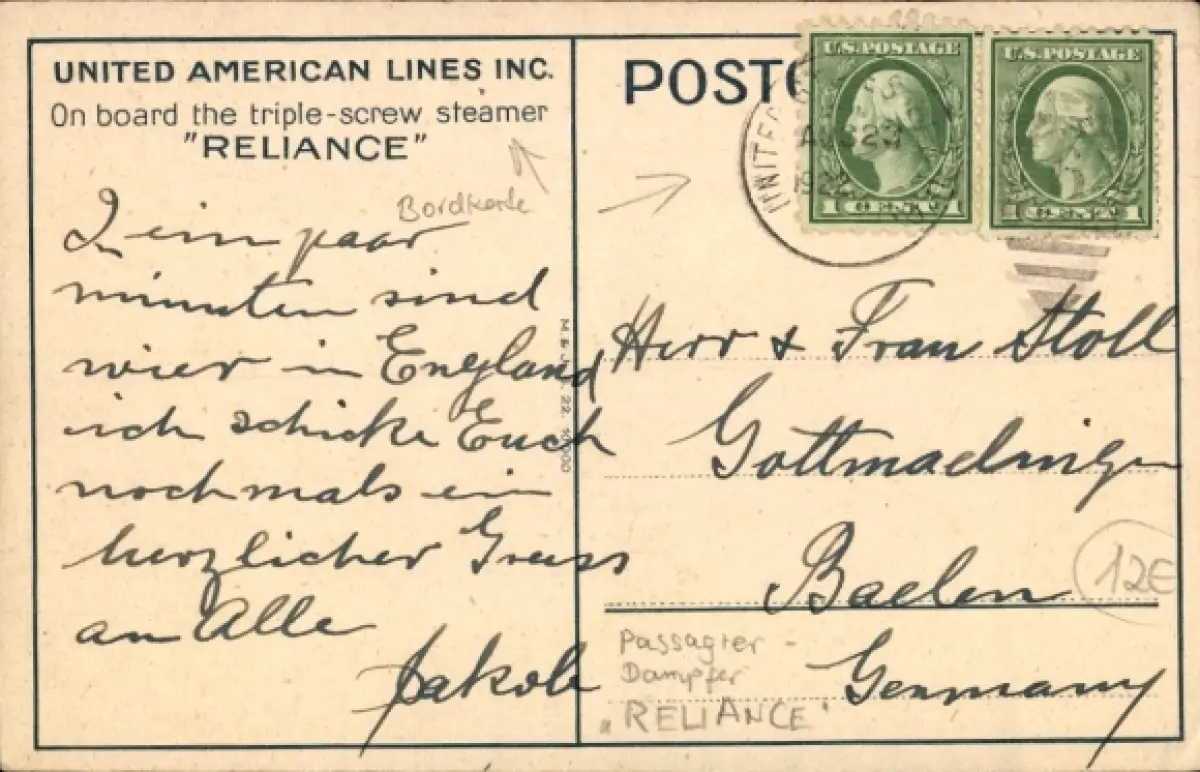 UNITED AMERICAN LINES INC.
On board the triple-screw steamer
"RELIANCE"
Bordkarte
In ein paar
minuten sind
wier in England
ich schicke Euch
nochmals ein
herzlicher Gruss
an Alle
Jakob
M. & J. 22.
POSTC
U.S. POSTAGE
1 CENT 1
U.S. POSTAGE
1 CENT 1
UNITED
AUG 23
Herr & Frau Stoll
Gottmadingen
Baden
Germany
12E
Passagier-
Dampfer
"RELIANCE"